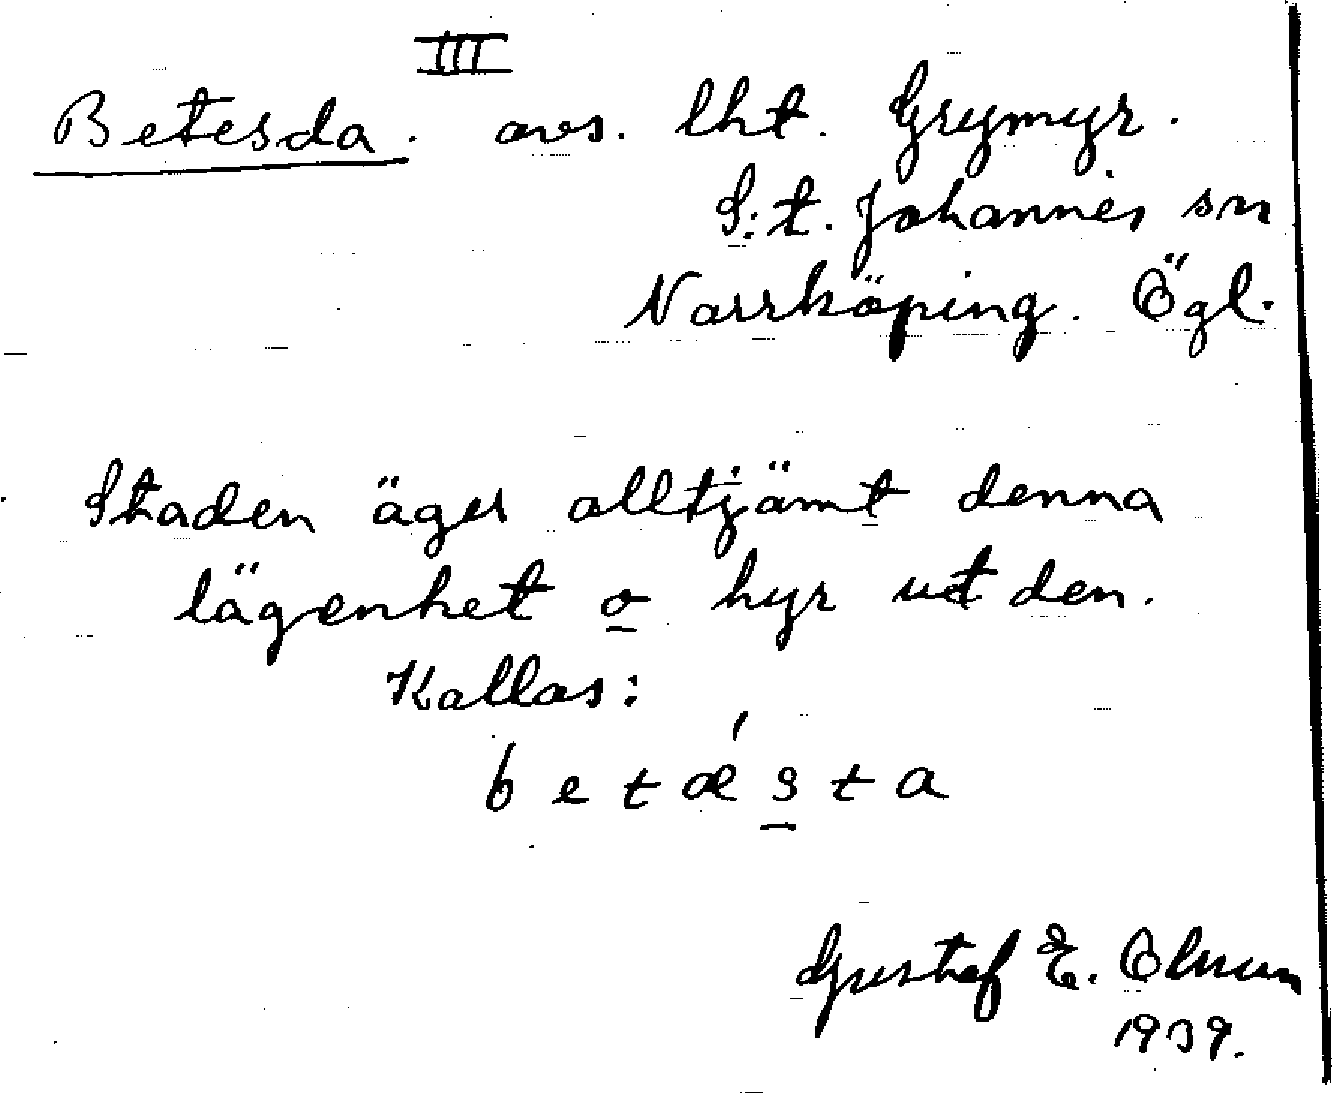 III
Betesda. avs. lht. Grymyr.
S:t. Johannes sn
Norrköping. Ögl.
Staden äger alltjämt denna
lägenhet o hyr ut den.
Kallas:
b e t ǽ s t a
Gustaf E.
1939.